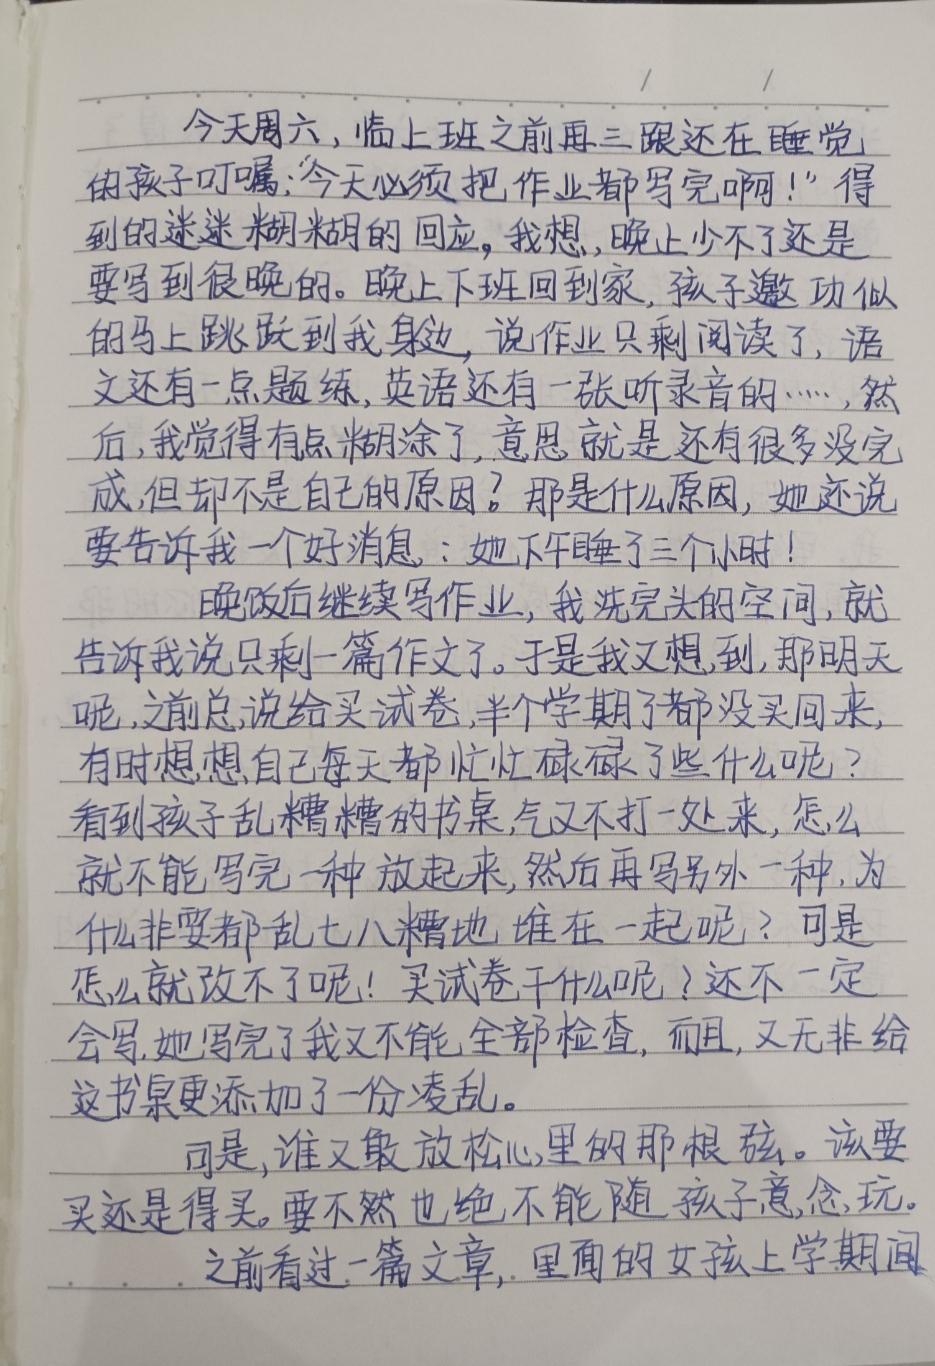 今天周六，临上班之前再三跟还在睡觉
的孩子叮嘱：“今天必须把作业都写完啊！”得
到的迷迷糊糊的回应。我想，晚上少不了还是
要写到很晚的。晚上下班回到家，孩子邀功似
的马上跳跃到我身边，说作业只剩阅读了，语
文还有一点题练，英语还有一张听录音的……，然
后，我觉得有点糊涂了，意思就是还有很多没完
成，但却不是自己的原因？那是什么原因，她还说
要告诉我一个好消息：她下午睡了三个小时！
晚饭后继续写作业，我洗完头的空间，就
告诉我说只剩一篇作文了。于是我又想到，那明天
呢，之前总说给买试卷，半个学期了都没买回来，
有时想想自己每天都忙忙碌碌了些什么呢？
看到孩子乱糟糟的书桌，气又不打一处来，怎么
就不能写完一种放起来，然后再写另外一种，为
什么非要都乱七八糟地堆在一起呢？可是
怎么就改不了呢！买试卷干什么呢？还不一定
会写，她写完了我又不能全部检查，而且，又无非给
这书桌更添加了一份凌乱。
可是，谁又敢放松心里的那根弦。该要
买还是得买。要不然也绝不能随孩子意念玩。
之前看过一篇文章，里面的女孩上学期间